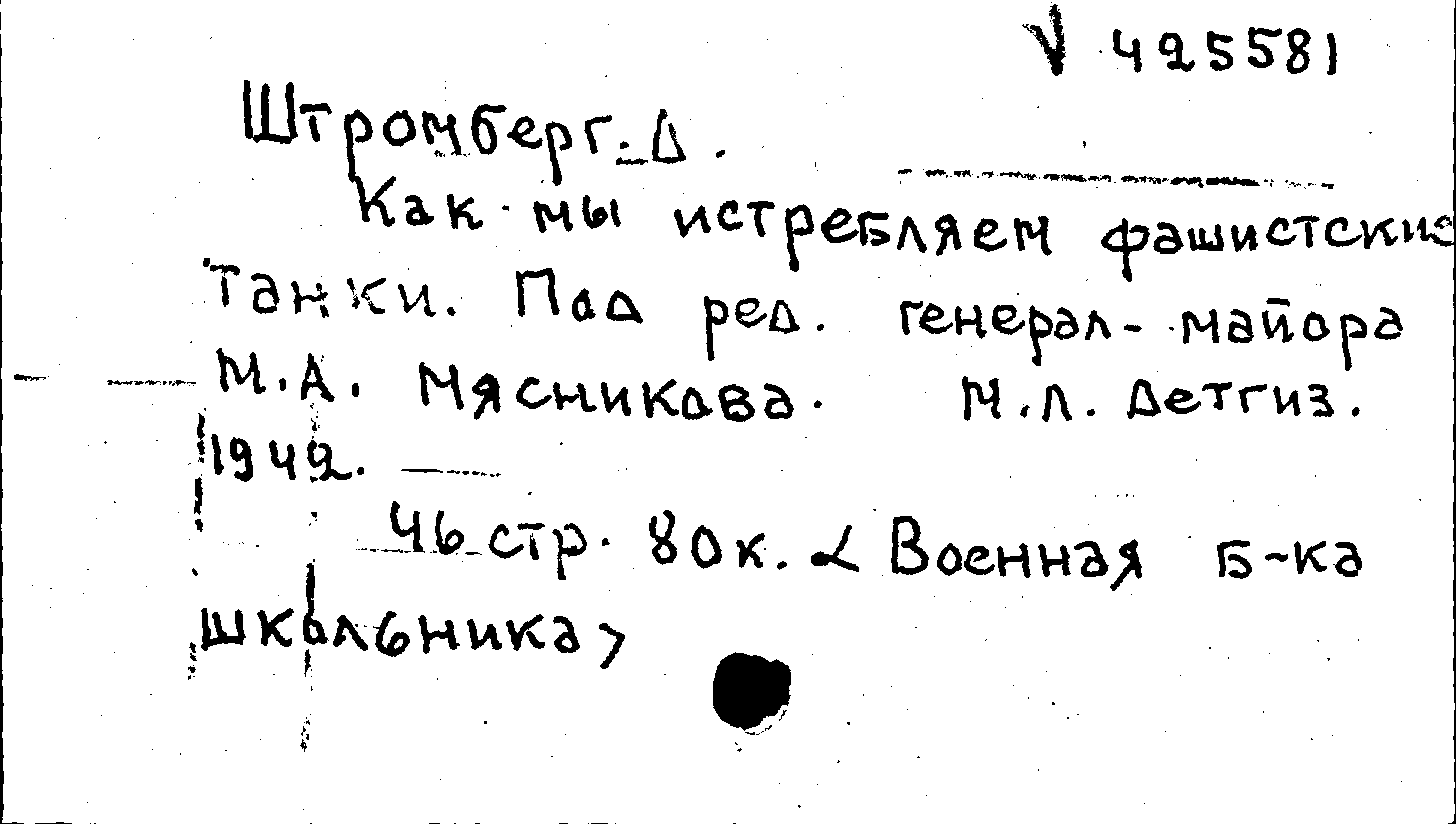 V 425581
Штромберг. Д.
Как мы истребляем фашистские
танки. Под ред. генерал-майора
М.А. Мясникова. М.Л. Детгиз.
1942.
46 стр. 80к. < Военная б-ка
школьника >